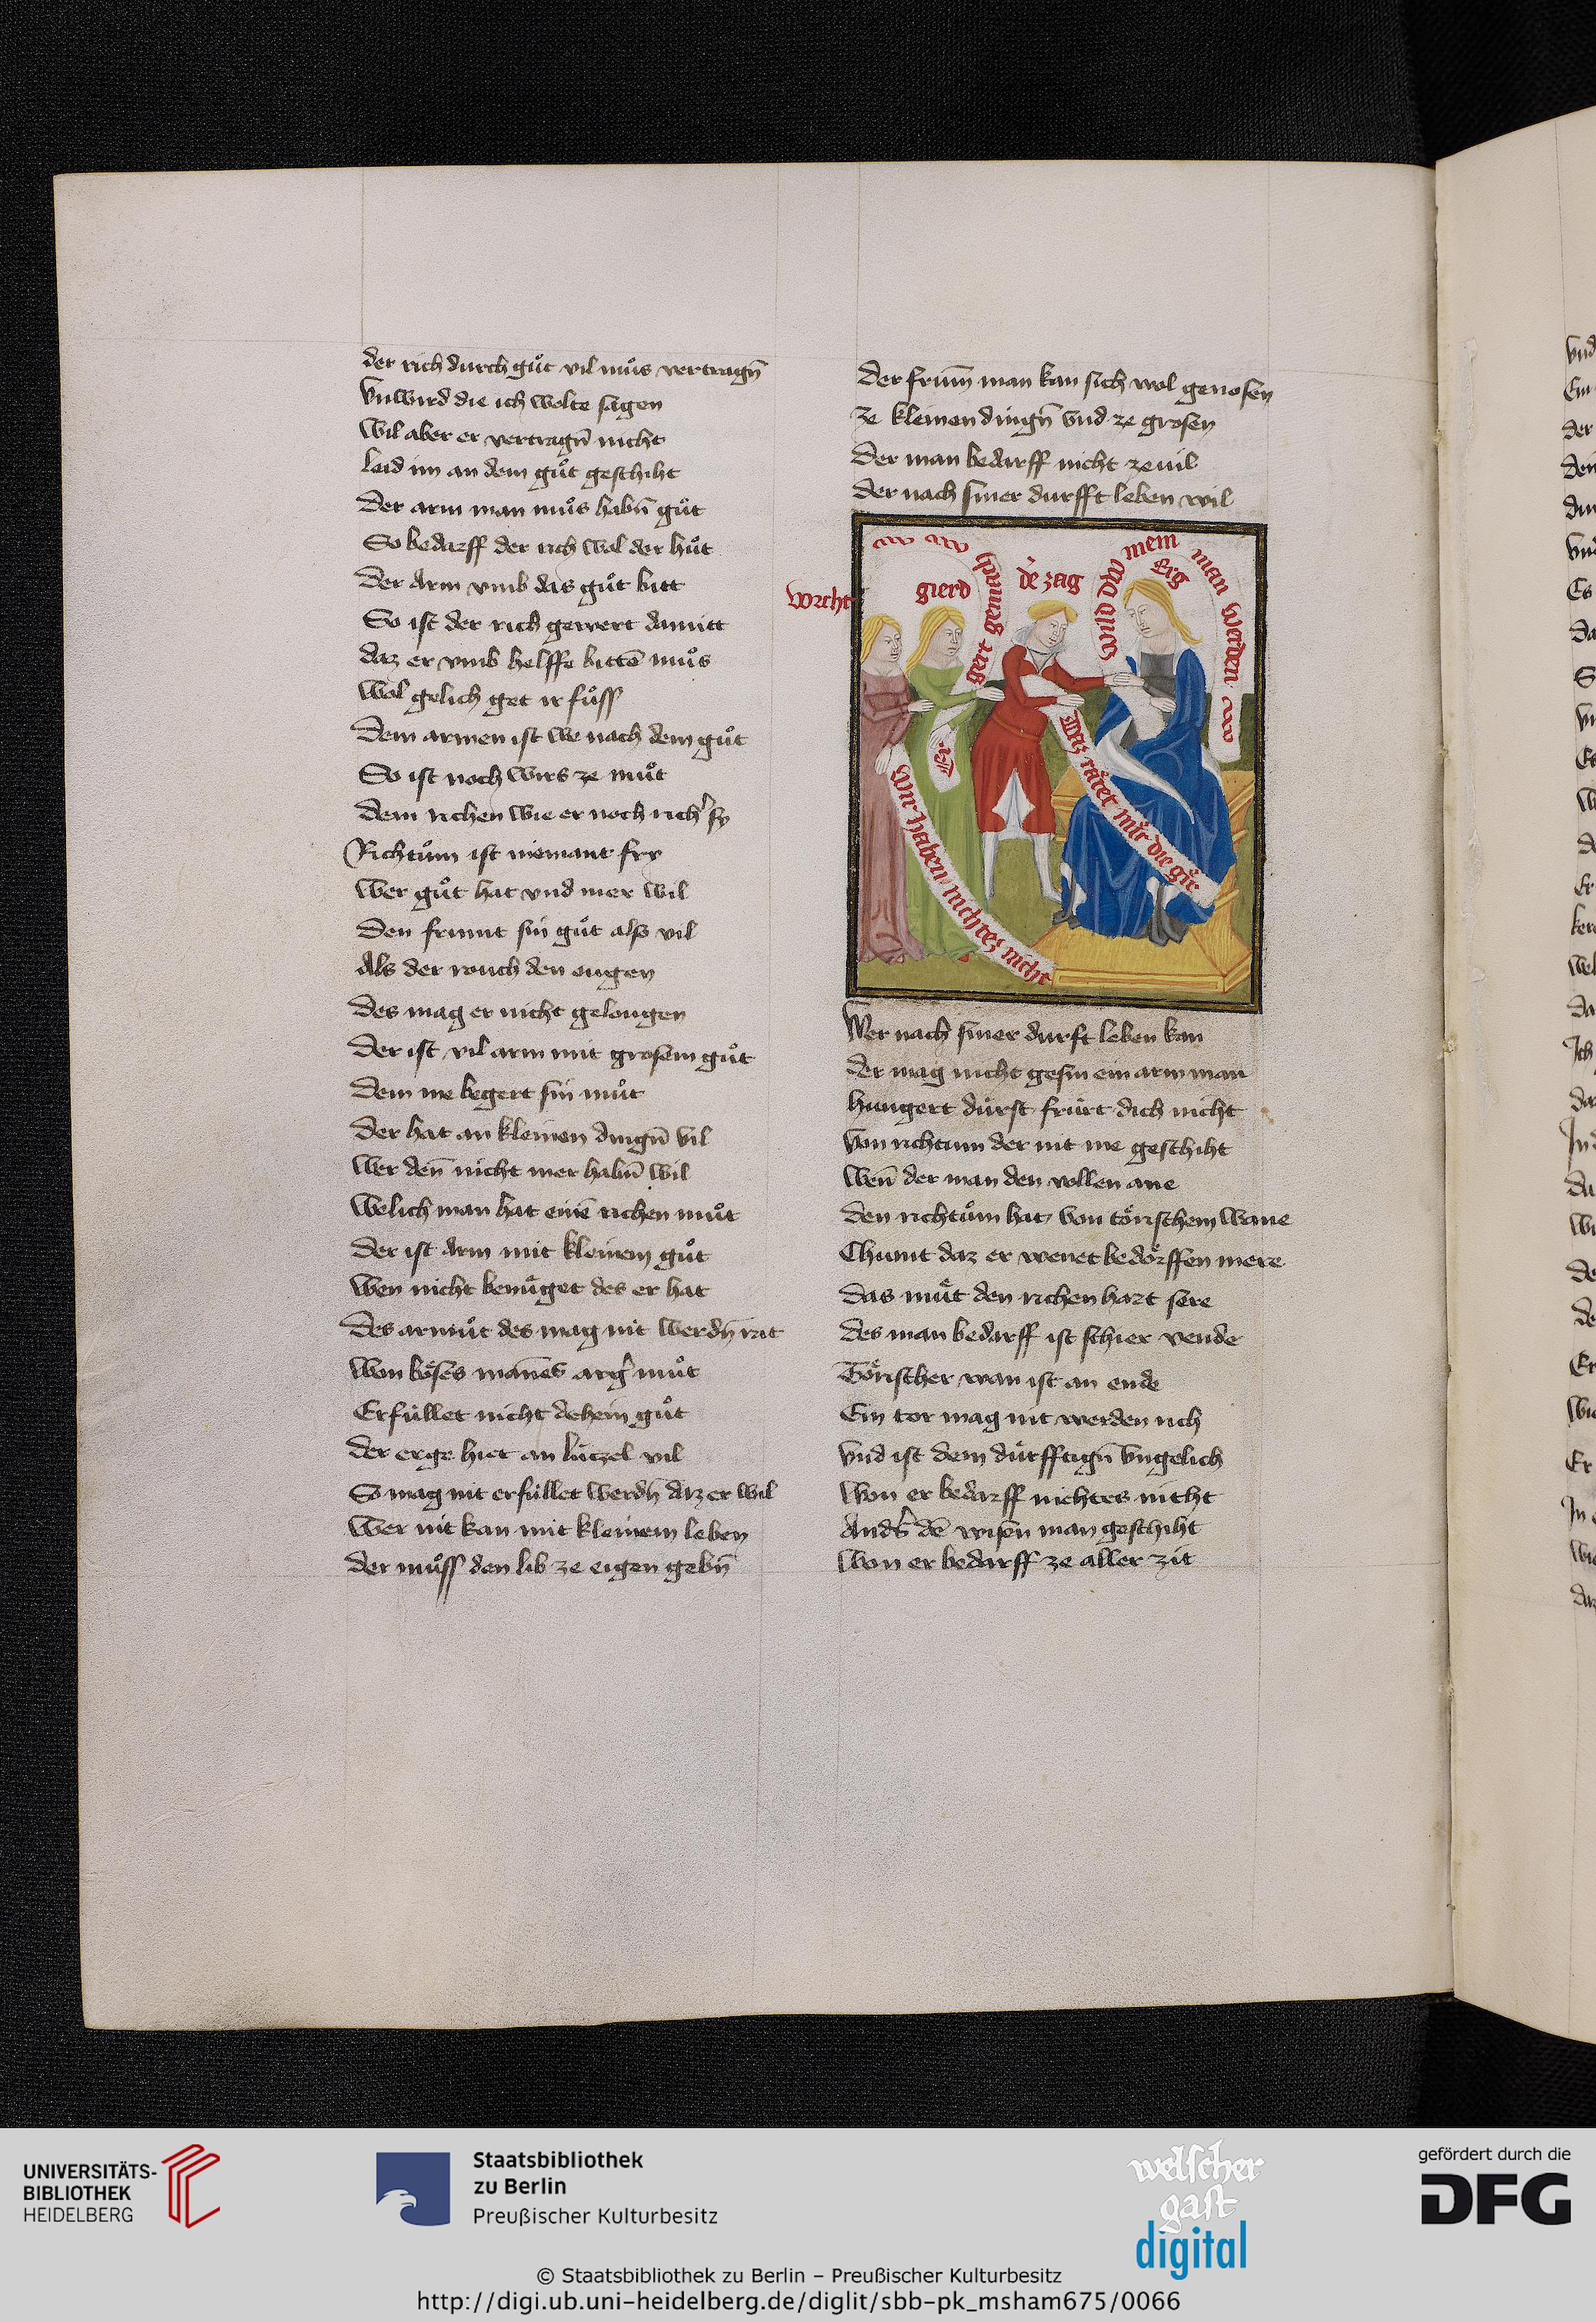 der rich durch gůt vil můs vertragn̄
Vnwird die ich wolte sagen
Wil aber er vertragn̄ nicht
laid im an dem gůt geschiht
Der arm man můs habn̄ gůt
So bedarff der rich wol der hůt
Der arm vmb das gůt bitt
So ist der rich gewert damitt
daz er vmb helffe bittē můs
Wol gelich get ir fůss
Dem armen ist we nach dem gůt
So ist noch wirs ze můt
dem richen wie er noch rich' sy
Richtům ist niemant fry
Wer gůt hat vnd mer wil
Den frumt sin gůt als vil
Als der rouch den ougen
des mag er nicht gelougen
Der ist vil arm mit grosem gůt
Dem me begert sin můt
Der hat an kleinen dingn̄ vil
Wer den̄ nicht mer habn̄ wil
Welich man hat einē richen můt
Der ist arm mit kleinem gůt
Wen nicht benůget des er hat
Des armůt des mag nit werdn̄ rat
Won böses man̄es arg' můt
Erfüllet nicht dehein gůt
der erge hiet an lützel vil
So mag nit erfüllet werdn̄ daz er wil
Wer nit kan mit kleinem leben
der můss den lib ze eigen gebn̄
Der frum̄ man kan sich wol genosen
ze kleinen dingn̄ vnd ze grosen
Der man bedarff nicht ze vil
der nach siner durfft leben wil
vorcht
gierd
gert gemach
dē zag
wild dw mein man werden
Erg
Waz rätet mir die gir
Wir haben nichtez nicht
Wer nach siner durft leben kan
der mag nicht gesin ein arm man
hungert dürst frürt dich nicht
von richtum der nit me geschiht
Wen̄ der man den vollen ane
den richtům hat von törischem wane
Chumt daz er wenet bedörffen mere
das můt den richen hart sere
des man bedarff ist schier vende
Törischer wan ist an ende
Ein tor mag nit werden rich
vnd ist dem dürfftign̄ vngelich
Won er bedarff nichtes nicht
Ands' dē wisen man geschiht
Won er bedarff ze aller zit
UNIVERSITÄTS-
BIBLIOTHEK
HEIDELBERG
Staatsbibliothek
zu Berlin
Preußischer Kulturbesitz
welscher
gast
digital
gefördert durch die
DFG
© Staatsbibliothek zu Berlin – Preußischer Kulturbesitz
http://digi.ub.uni-heidelberg.de/diglit/sbb-pk_msham675/0066